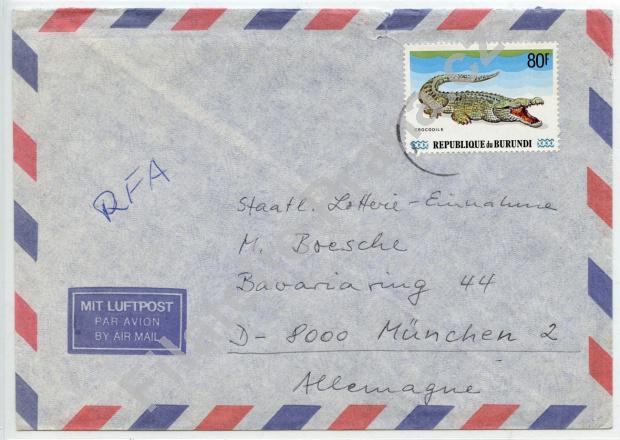 80F
CROCODILE
REPUBLIQUE du BURUNDI
RFA
Staatl. Lotterie-Einnahme
M. Boesche
Bavariaring 44
D-8000 München 2
Allemagne
MIT LUFTPOST
PAR AVION
BY AIR MAIL